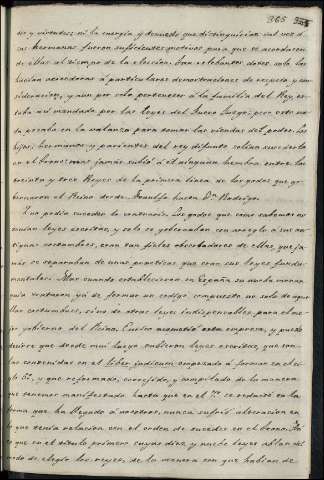 365
dio y virtudes; ni la energia y denuedo que distinguieron tal vez á
sus hermanas fueron suficientes motivos para que se acordasen
de ellas al tiempo de la eleccion. Tan relevantes dotes solo las
hacian acreedoras á particulares demostraciones de respeto y con-
sideracion, y aun por solo pertenecer á la familia del Rey, es-
taba asi mandado por las leyes del Fuero Juzgo; pero esto na-
da pesaba en la balanza para tomar las riendas del poder. Los
hijos, hermanos y parientes del rey difunto solian sucederle
en el trono; mas jamás subió á él ninguna hembra entre los
treinta y tres Reyes de la primera linea de los godos que go-
bernaron el Reino desde Ataulfo hasta Dn. Rodrigo.
No podia suceder lo contrario. Los godos que como sabemos no
tenian leyes escritas, y solo se gobernaban con arreglo á sus an-
tiguas costumbres, eran tan fieles observadores de ellas, que ja-
más se separaban de unas practicas que eran sus leyes funda-
mentales. Mas cuando establecieron en España su nueva monar-
quia trataron ya de formar un codigo compuesto no solo de aque-
llas costumbres, sino de otras leyes indispensables para el me-
jor gobierno del Reino. Eurico acometió esta empresa, y puede
decirse que desde muy luego tubieron leyes escritas, que son
las contenidas en el liber judicum empezado á formar en el si-
glo 5º, y que reformado, corregido, y compilado de la manera
que tenemos manifestado hasta que en el 7º se redactó en la
forma que ha llegado á nosotros, nunca sufrió alteracion en
lo que tenia relacion con el orden de suceder en el trono. En
lo que en el titulo primero cuyas diez y nueve leyes hablan del
modo de elegir los reyes, de la manera con que habian de